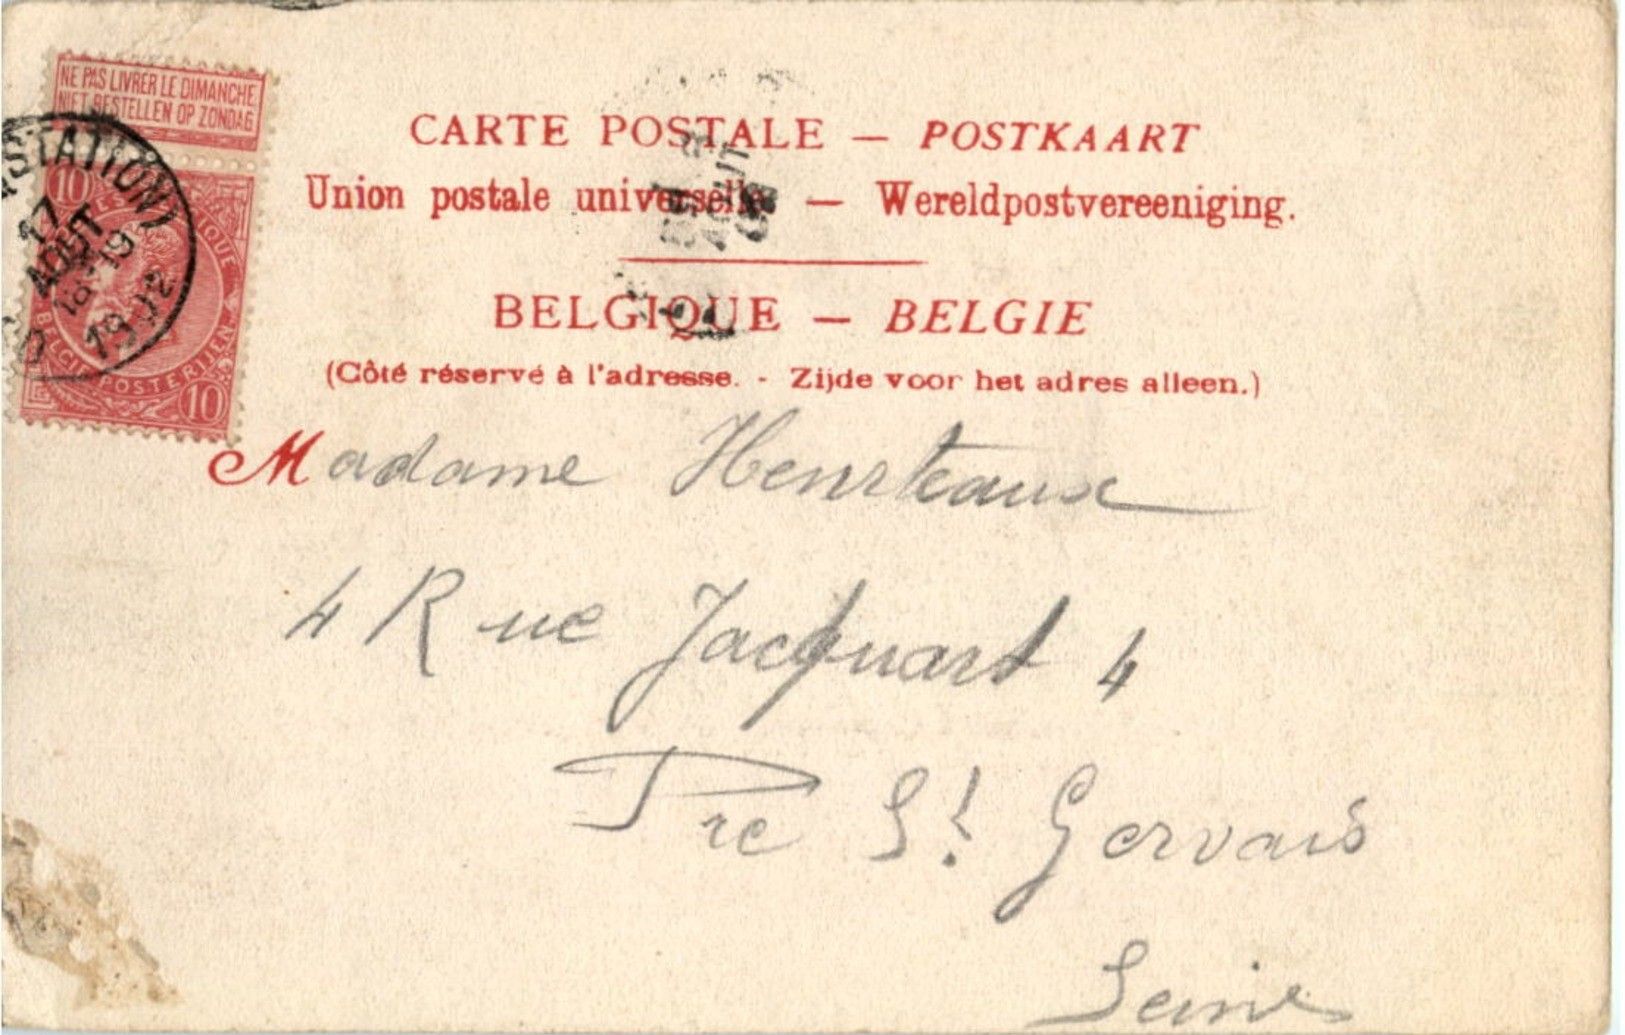 NE PAS LIVRER LE DIMANCHE
NIET BESTELLEN OP ZONDAG
STATION)
17
AOUT
18-19
1902
10
10
BELGIE POSTERIJEN
CARTE POSTALE — POSTKAART
Union postale universelle — Wereldpostvereeniging.
AOUT
BELGIQUE — BELGIE
(Côté réservé à l'adresse. - Zijde voor het adres alleen.)
Madame Hensteaux
4 Rue Jacquart 4
Pre St Gervais
Seine